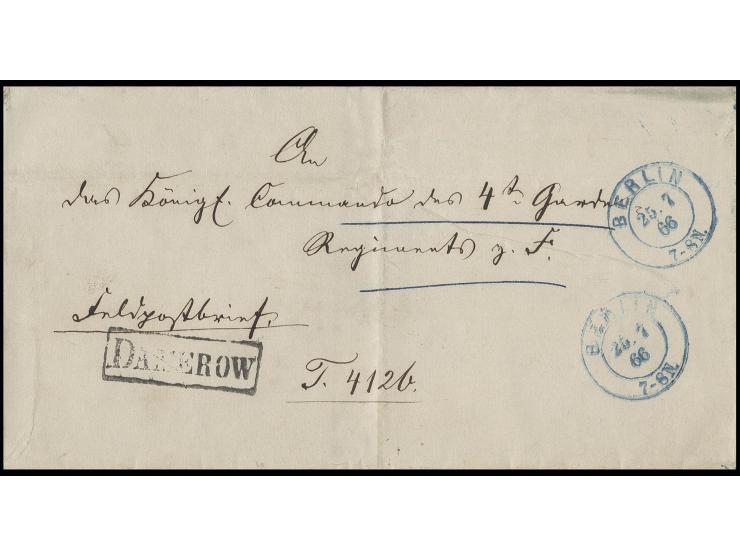 An
das Königl. Commando des 4ten Garde
Regiments z. F.
Feldpostbrief.
DAMEROW
T. 4126.
BERLIN
25 7
66
7-8N.
BERLIN
25 7
66
7-8N.